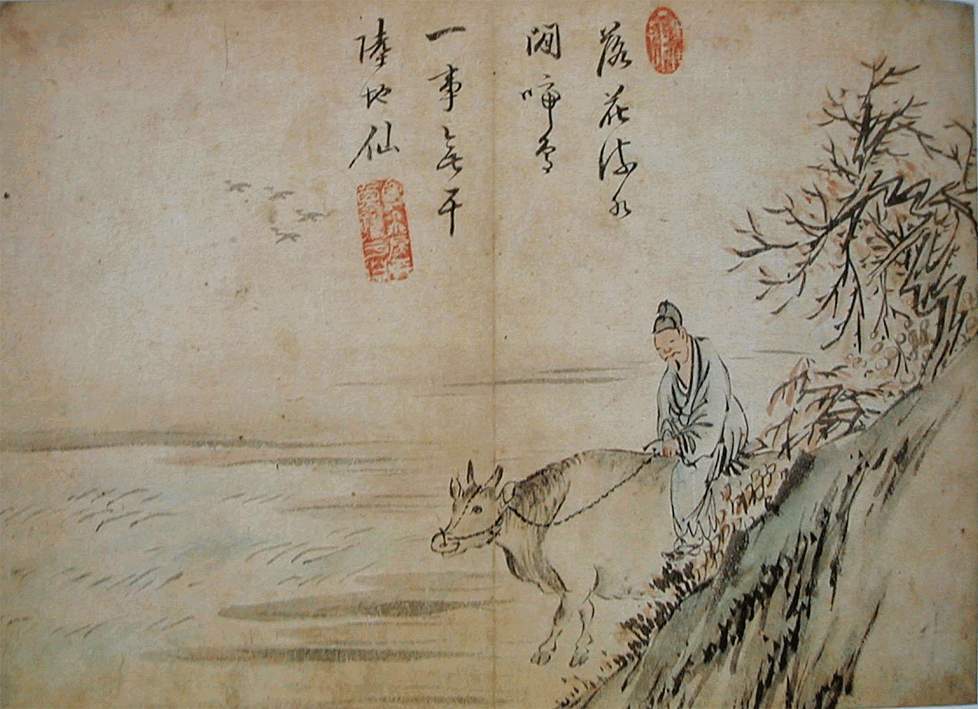 落花流水
閒啼鳥
一事無干
陸地仙